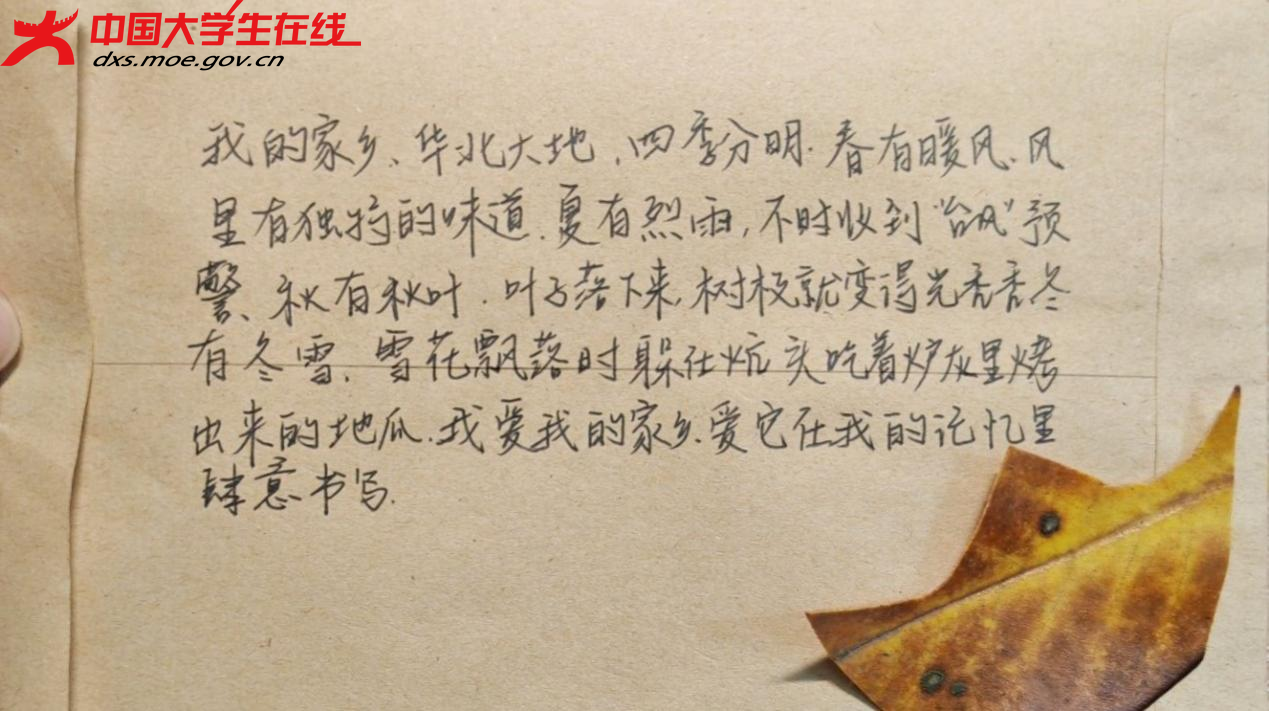 中国大学生在线
dxs.moe.gov.cn
我的家乡、华北大地，四季分明.春有暖风、风
里有独特的味道.夏有烈雨,不时收到“台风”预
警、秋有秋叶.叶子落下来,树枝就变得光秃秃冬
有冬雪、雪花飘落时躲在炕头吃着炉灰里烤
出来的地瓜.我爱我的家乡.爱它在我的记忆里
肆意书写.